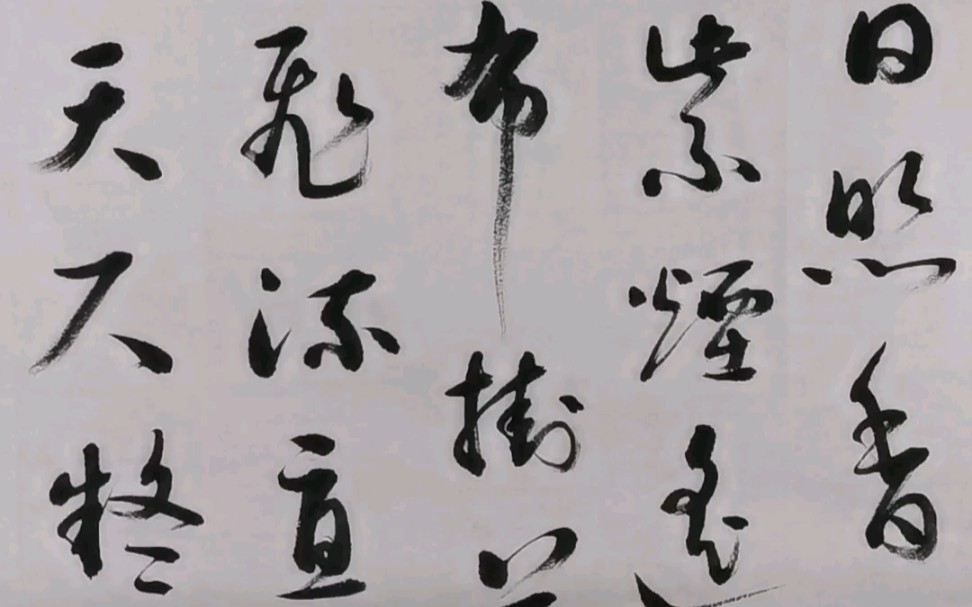 日照香
紫煙遙
布掛
飛流直
天